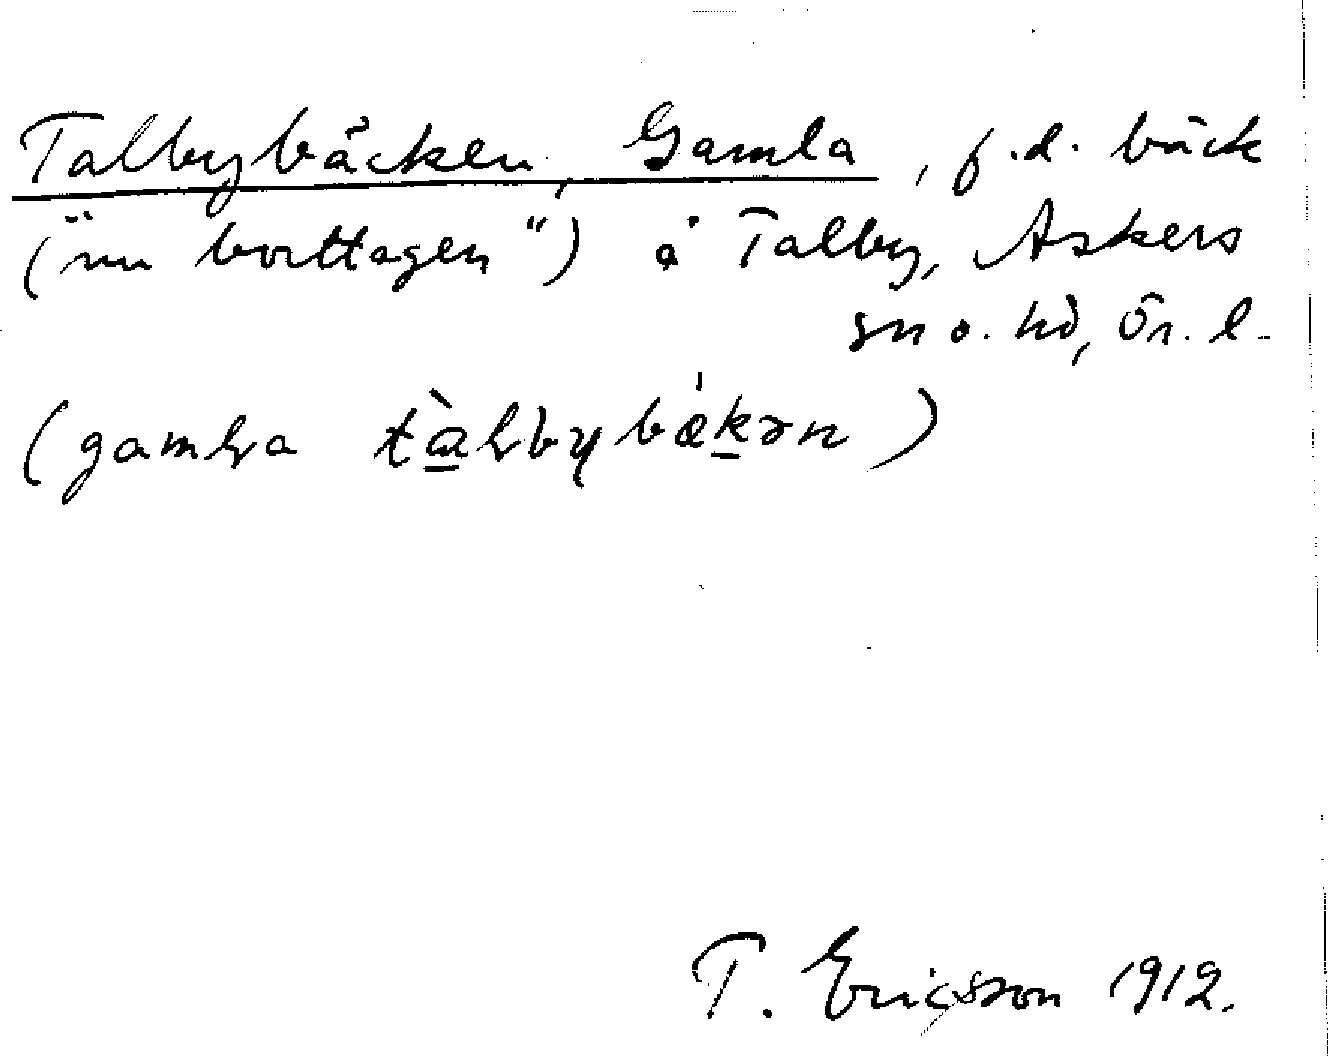 Talbybäcken, Gamla, f.d. bäck
("nu borttagen") å Talby, Askers
sn o. hd, Ör. l.
(gamḷa tàḷbybǽkən)
T. Ericsson 1912.